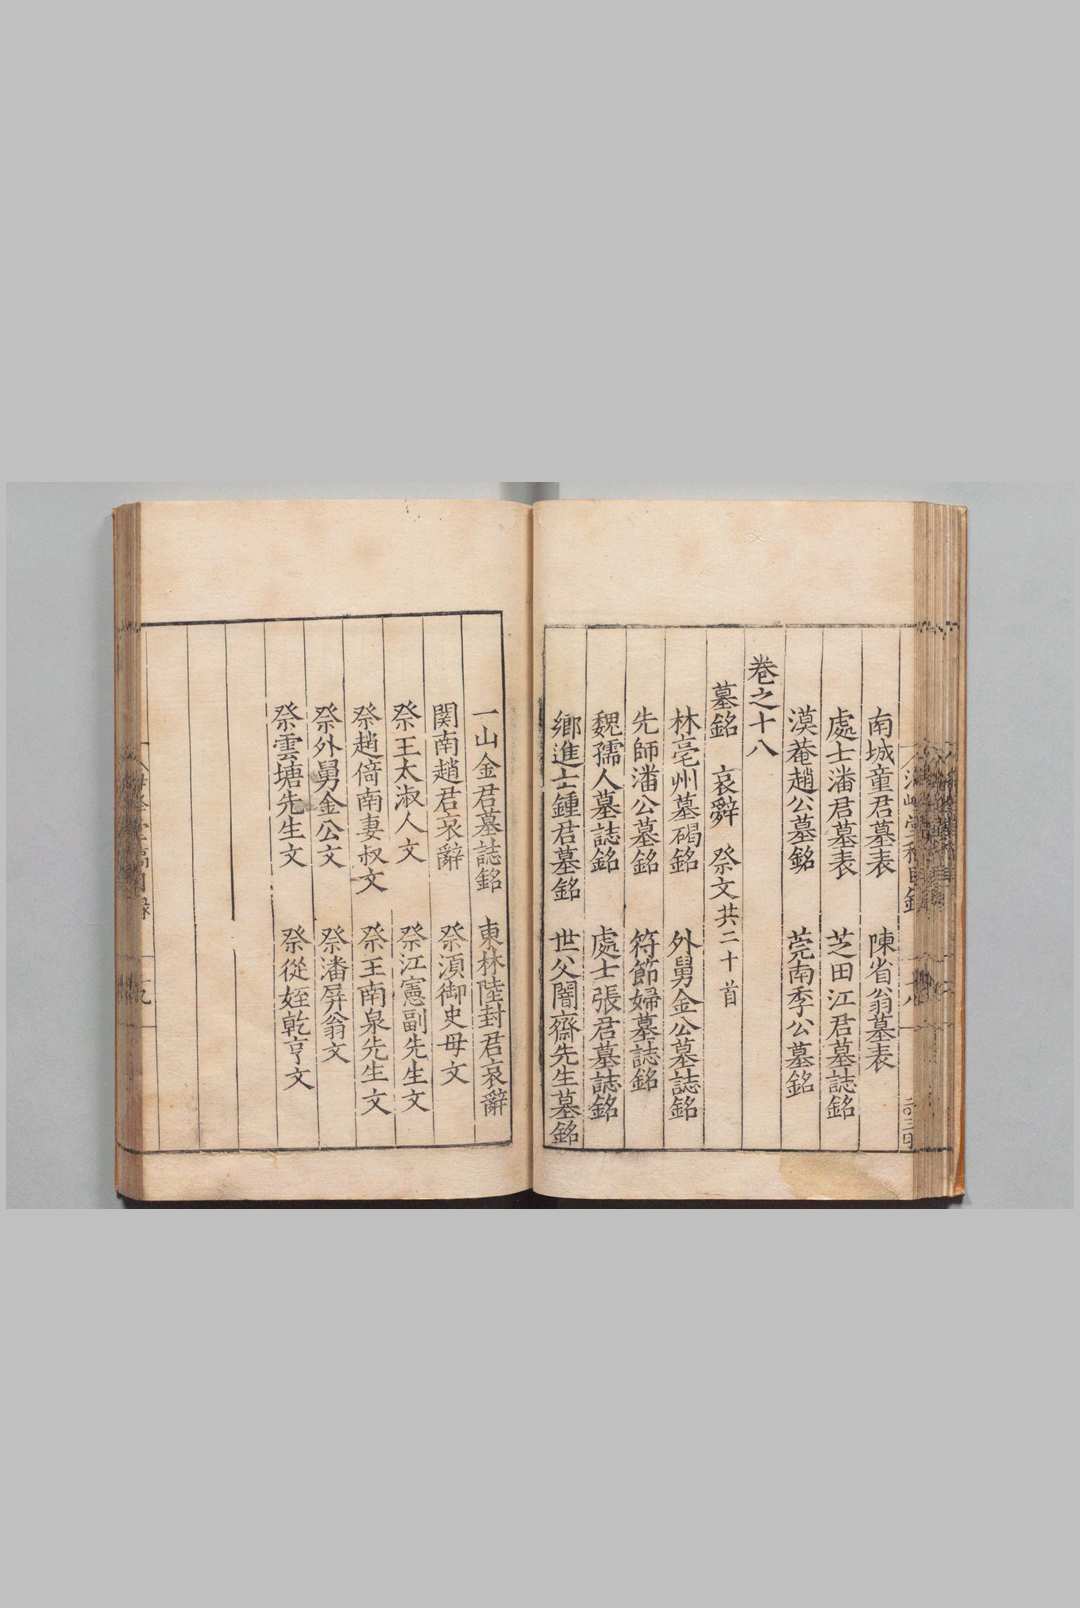 南城童君墓表　陳省翁墓表
處士潘君墓表　芝田江君墓誌銘
漠菴趙公墓銘　莞南季公墓銘
卷之十八
墓銘　哀辭　祭文共二十首
林亳州墓碣銘　外舅金公墓誌銘
先師潘公墓銘　符節婦墓誌銘
魏孺人墓誌銘　處士張君墓誌銘
鄉進士鍾君墓銘　世父闇齋先生墓銘
一山金君墓誌銘　東林陸封君哀辭
関南趙君哀辭　祭湏御史母文
祭王太淑人文　祭江憲副先生文
祭趙偹南妻叔文　祭王南泉先生文
祭外舅金公文　祭潘屏翁文
祭雲塘先生文　祭從姪乾亨文